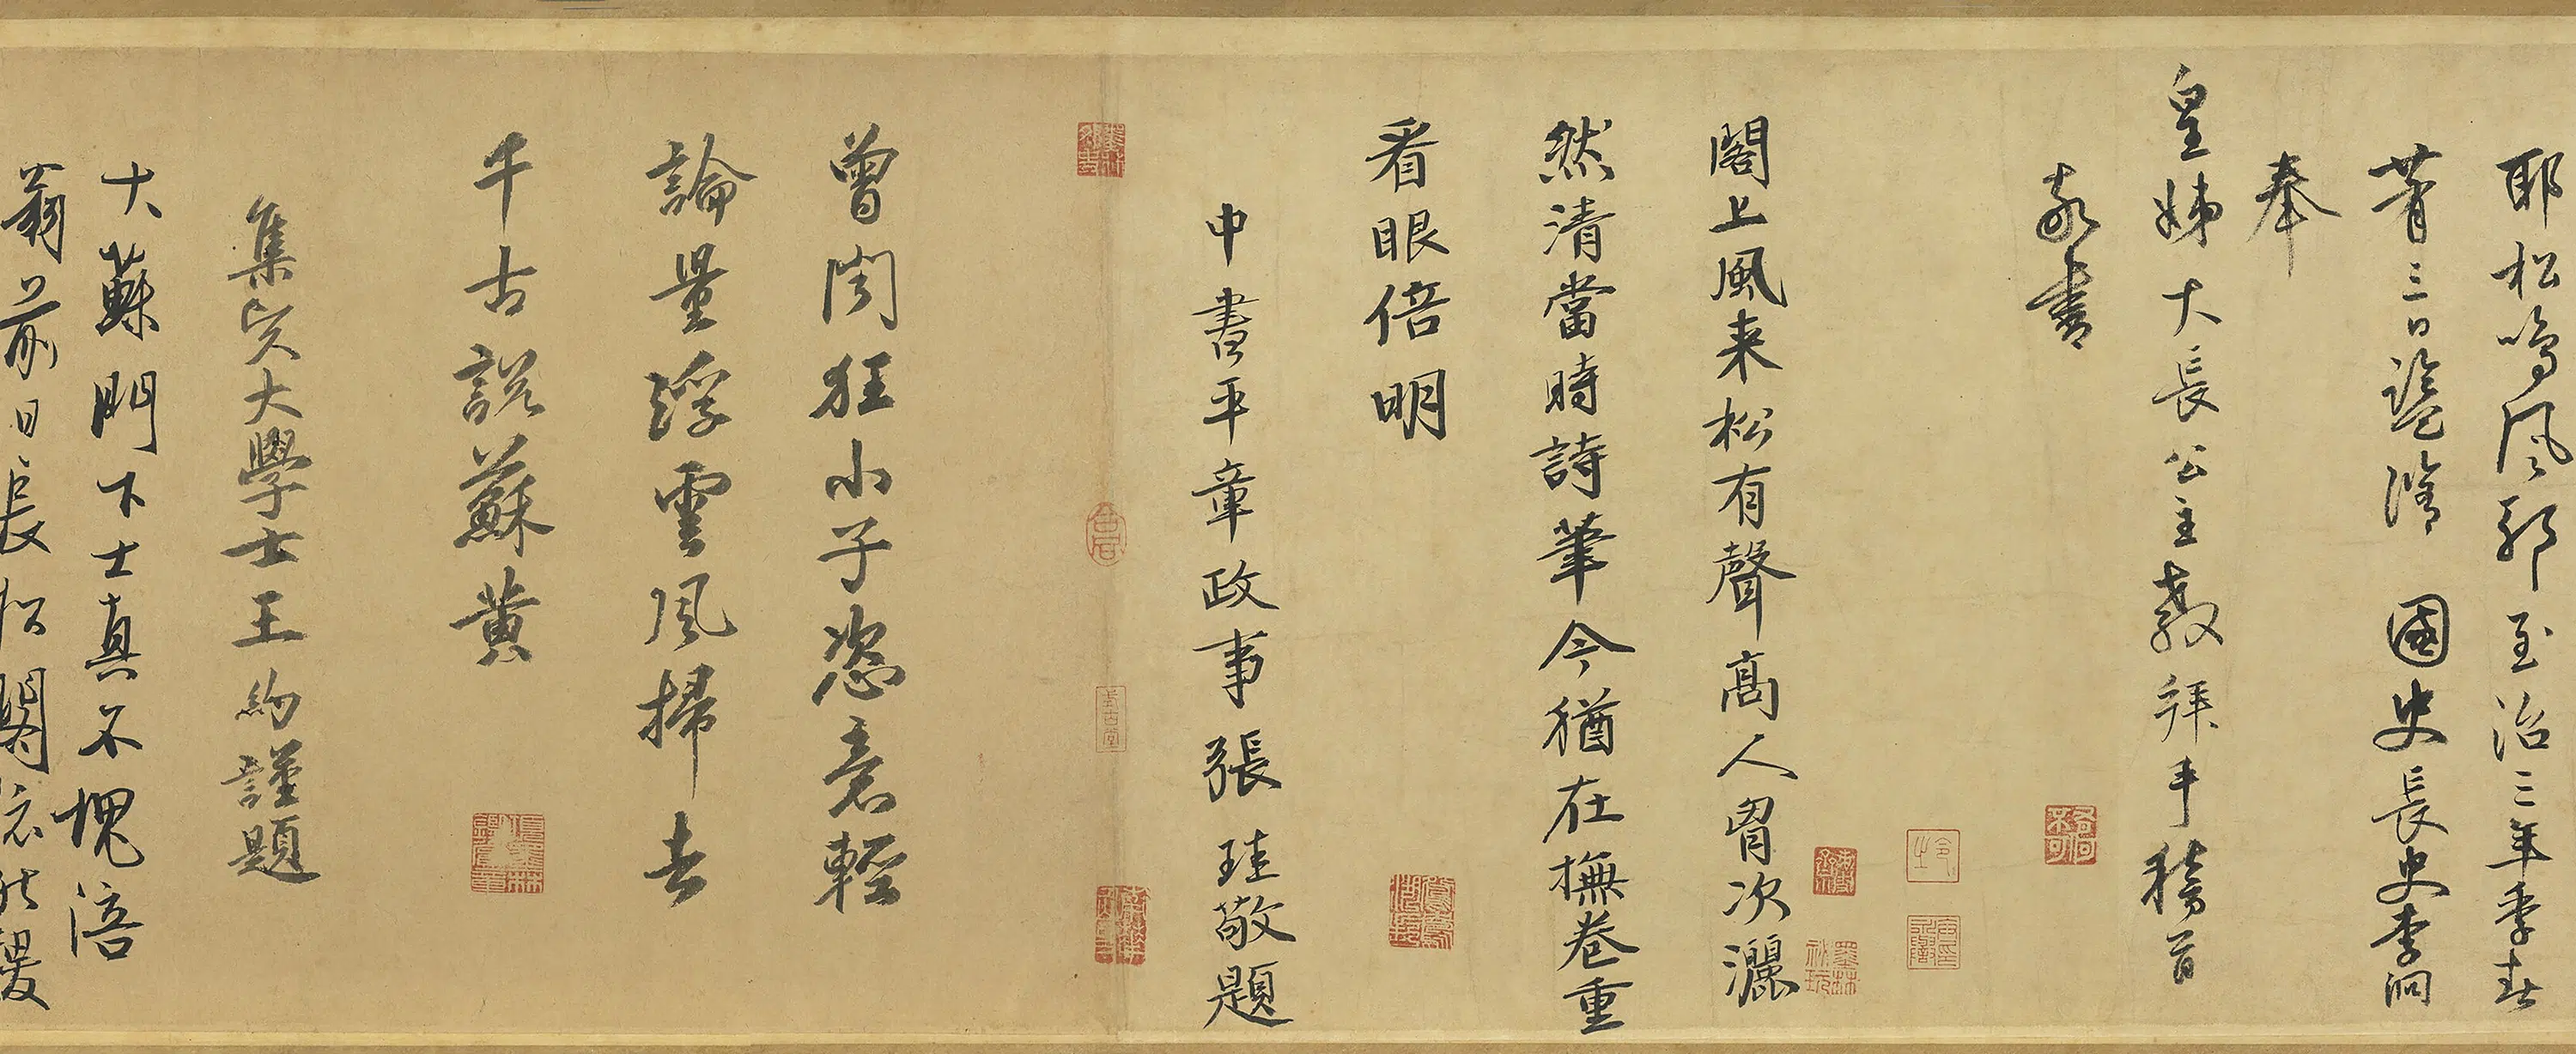 耶松鳴風邪至治三年季春
著三日證階 國史長史李洞
奉
皇姊大長公主教拜手稽首
敬書
閣上風来松有聲高人胷次灑
然清當時詩筆今猶在撫卷重
看眼倍明
中書平章政事張珪敬題
曾聞狂小子恣意輕
論量浮雲風掃去
千古說蘇黃
集賢大學士王約謹題
大蘇門下士真不愧涪
翁前日長松閣